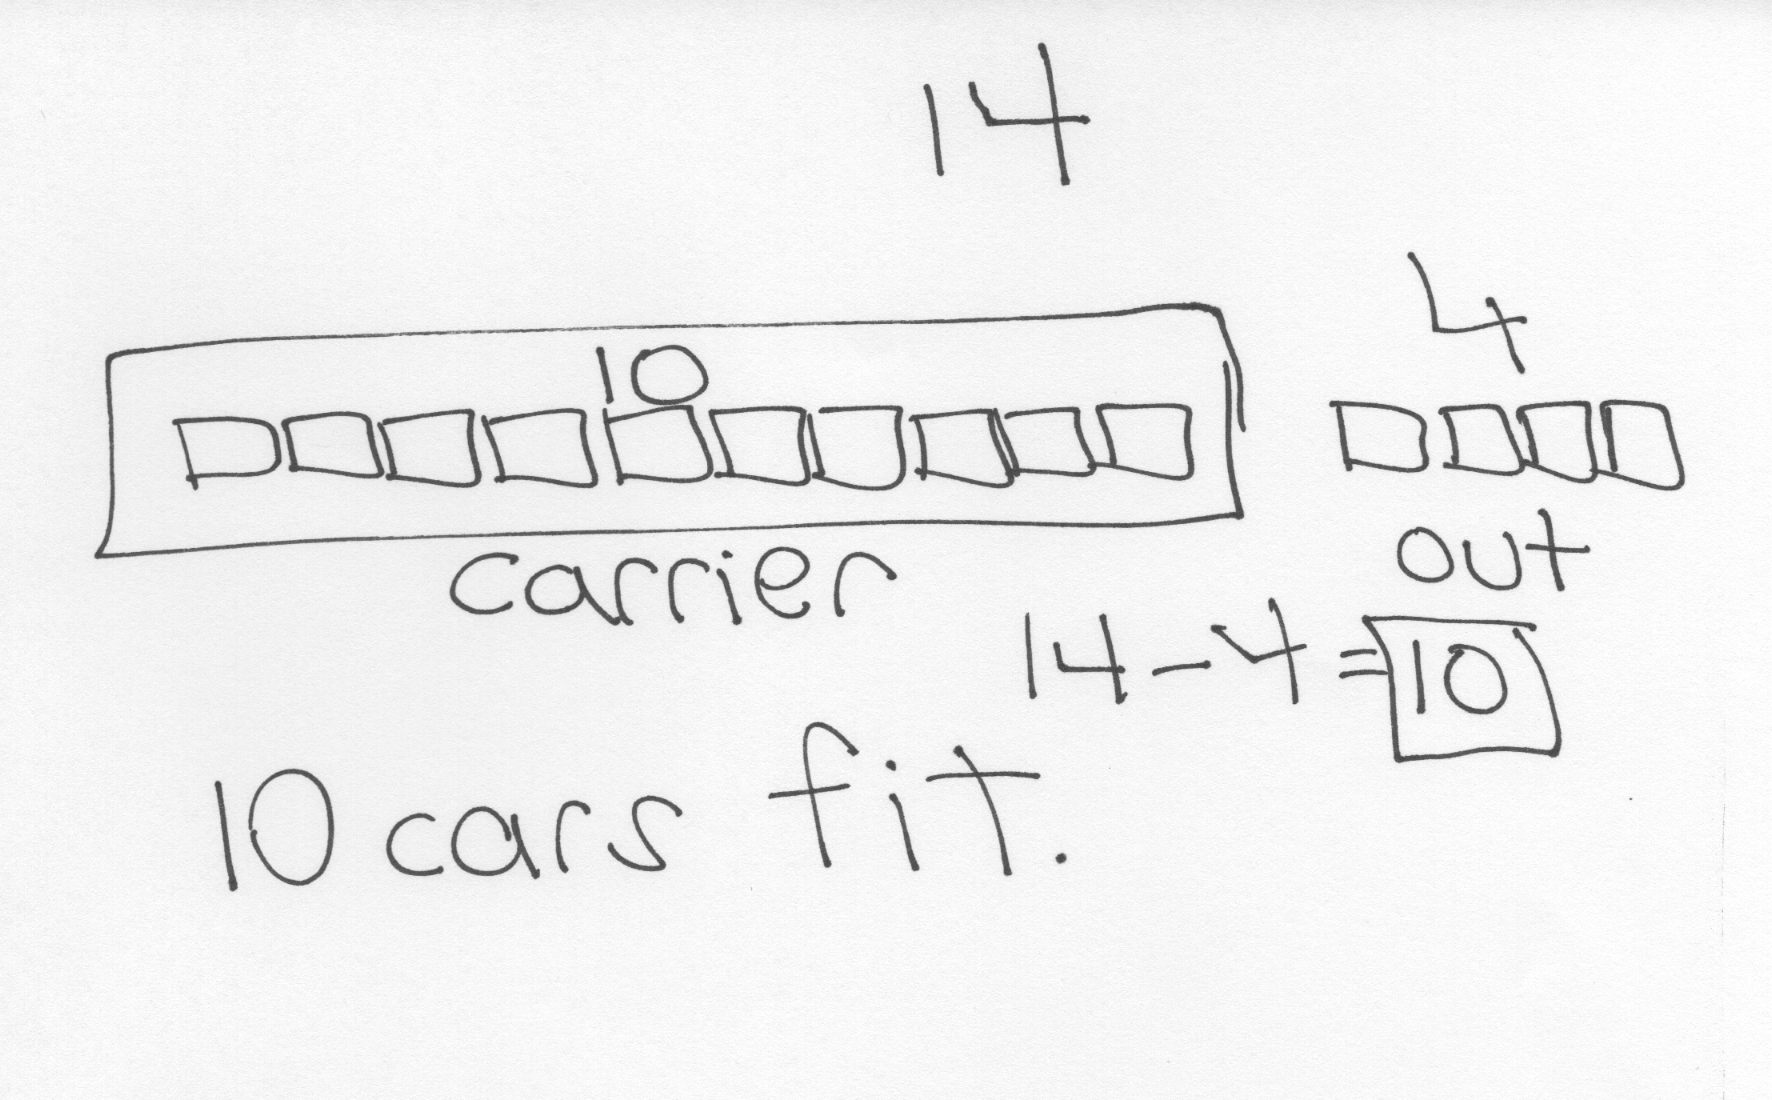 14
4
10
carrier
out
14-4=10
10 cars fit.